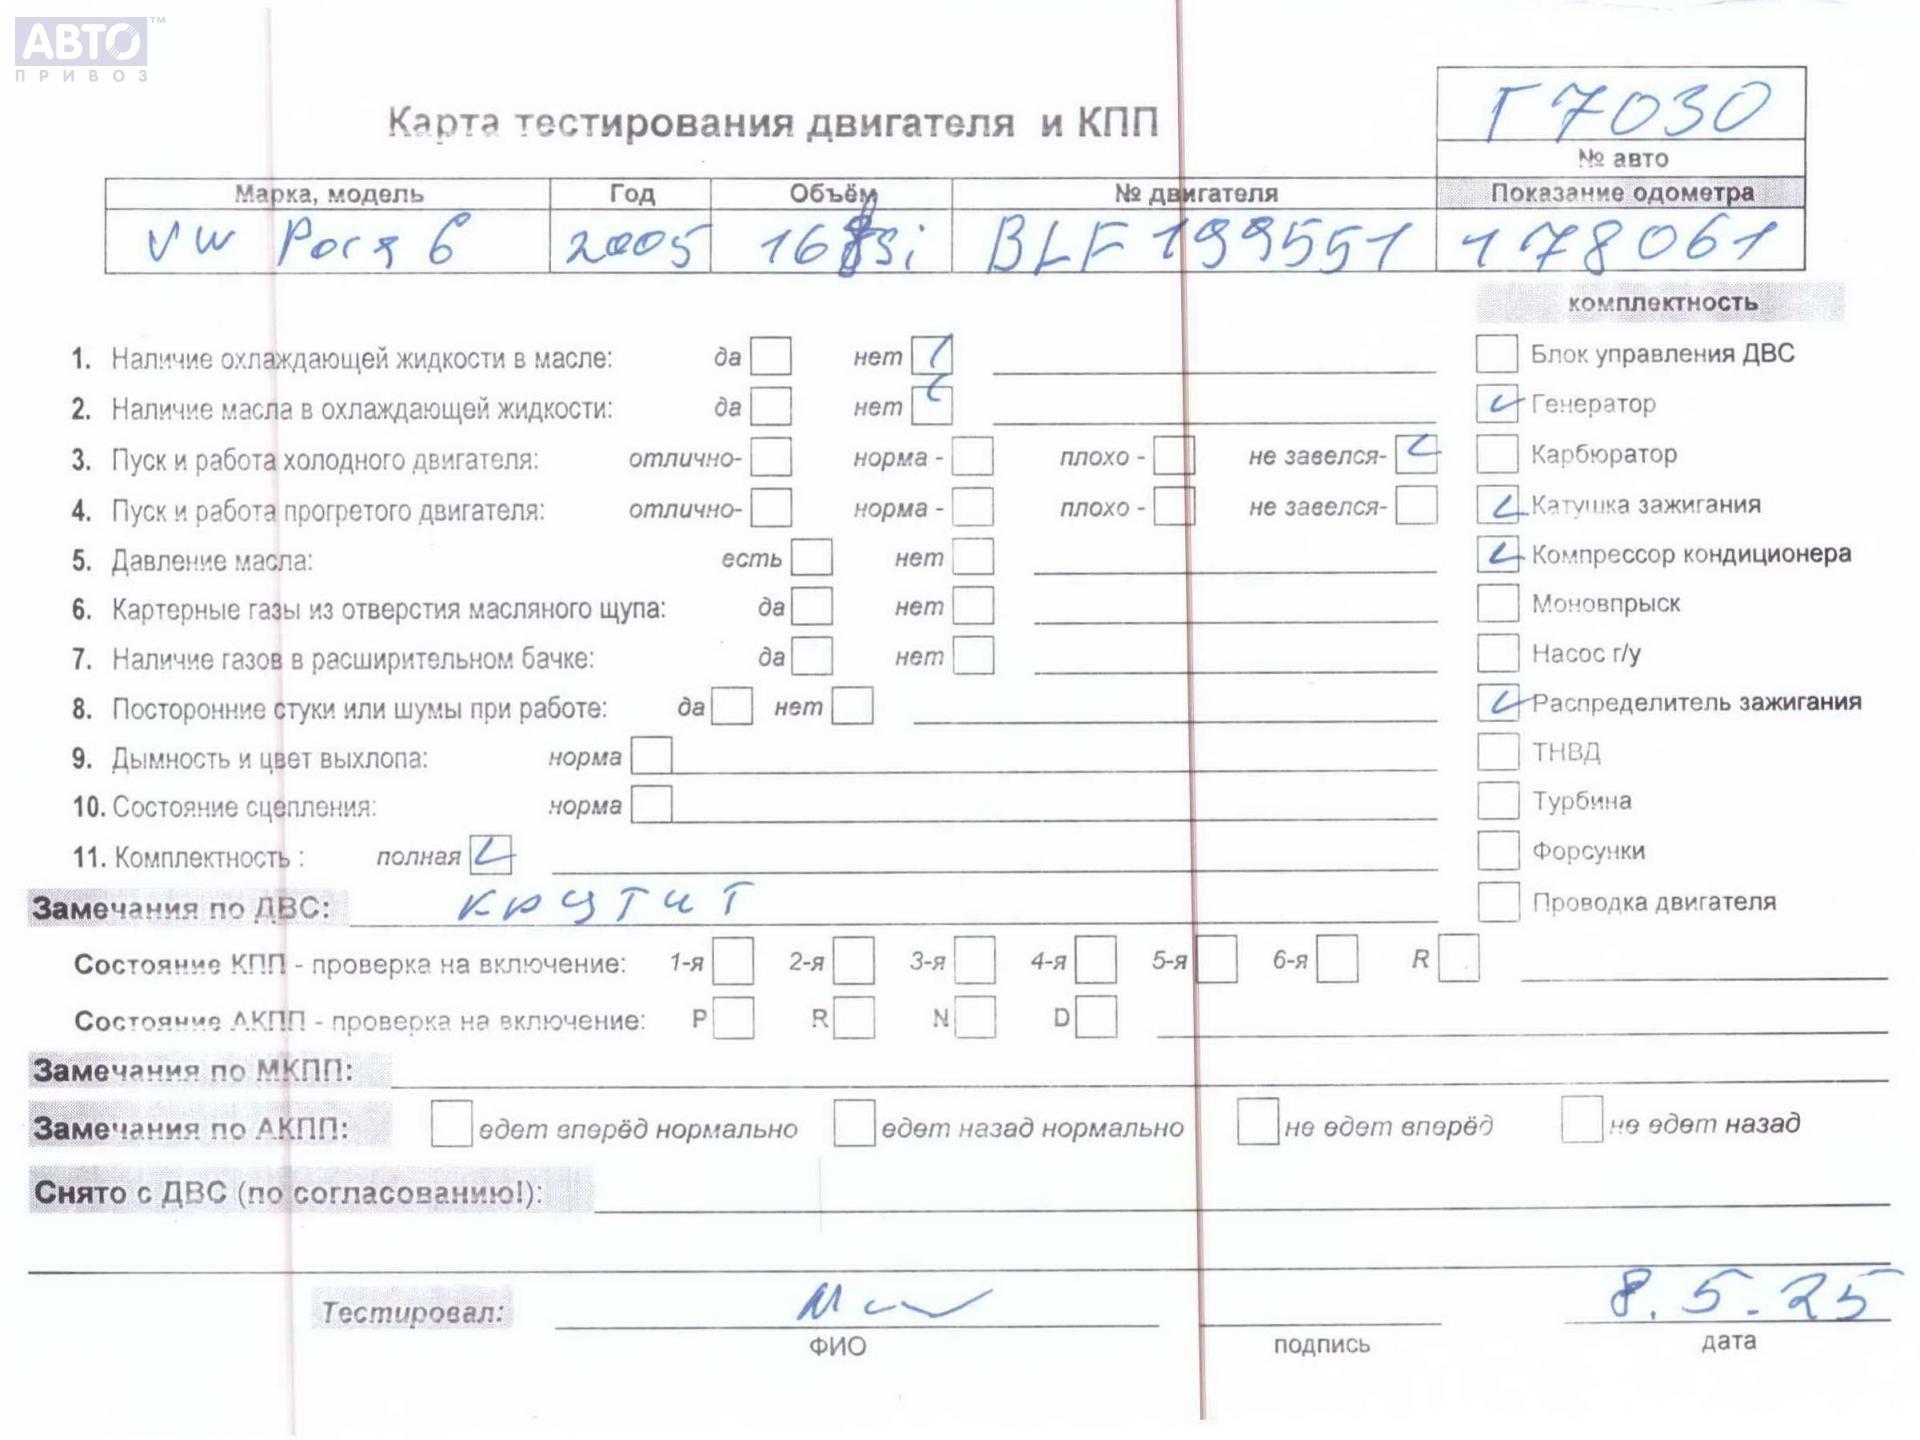 АВТО™
ПРИВОЗ
Карта тестирования двигателя и КПП
Г7030
№ авто
Марка, модель Год Объём № двигателя Показание одометра
VW 2005 BLF 199551 178061
комплектность
1. Наличие охлаждающей жидкости в масле: да нет
2. Наличие масла в охлаждающей жидкости: да нет
3. Пуск и работа холодного двигателя: отлично- норма - плохо - не завелся-
4. Пуск и работа прогретого двигателя: отлично- норма - плохо - не завелся-
5. Давление масла: есть нет
6. Картерные газы из отверстия масляного щупа: да нет
7. Наличие газов в расширительном бачке: да нет
8. Посторонние стуки или шумы при работе: да нет
9. Дымность и цвет выхлопа: норма
10. Состояние сцепления: норма
11. Комплектность : полная
Блок управления ДВС
Генератор
Карбюратор
Катушка зажигания
Компрессор кондиционера
Моновпрыск
Насос г/у
Распределитель зажигания
ТНВД
Турбина
Форсунки
Проводка двигателя
Замечания по ДВС: крутит
Состояние КПП - проверка на включение: 1-я 2-я 3-я 4-я 5-я 6-я R
Состояние АКПП - проверка на включение: P R N D
Замечания по МКПП:
Замечания по АКПП: едет вперёд нормально едет назад нормально не едет вперёд не едет назад
Снято с ДВС (по согласованию!):
Тестировал: 8.5.25
ФИО подпись дата